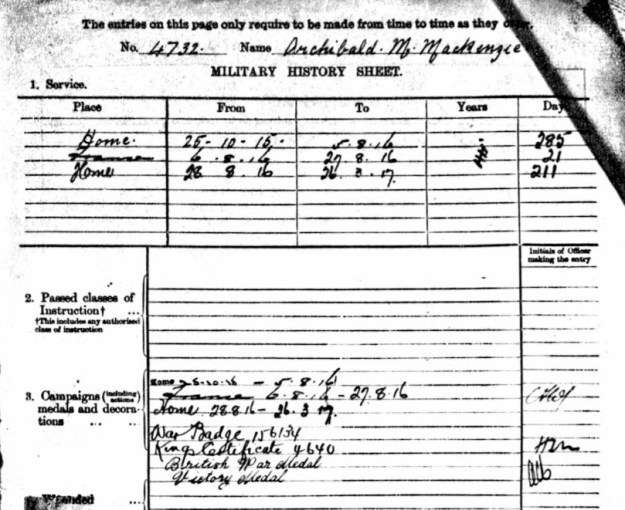 The entries on this page only require to be made from time to time as they
No. 4732. Name Archibald. M. Mackenzie
MILITARY HISTORY SHEET.
1. Service.
Place From To Years Day
Home. 25-10-15. 5.8.16 285
France 6.8.16 27.8.16 21
Home 28 8.16 26.3.17. 211
Initials of Officer
making the entry
2. Passed classes of
Instruction† ...
†This includes any authorised
class of instruction
Home 25-10-15 - 5.8.16
3. Campaigns (including actions) France 6.8.16 - 27.8.16
medals and decora- Home 28.8.16 - 26.3.17.
tions ... ...
War Badge 156134
Kings Certificate 4640
British War Medal
Victory Medal
Wounded ...